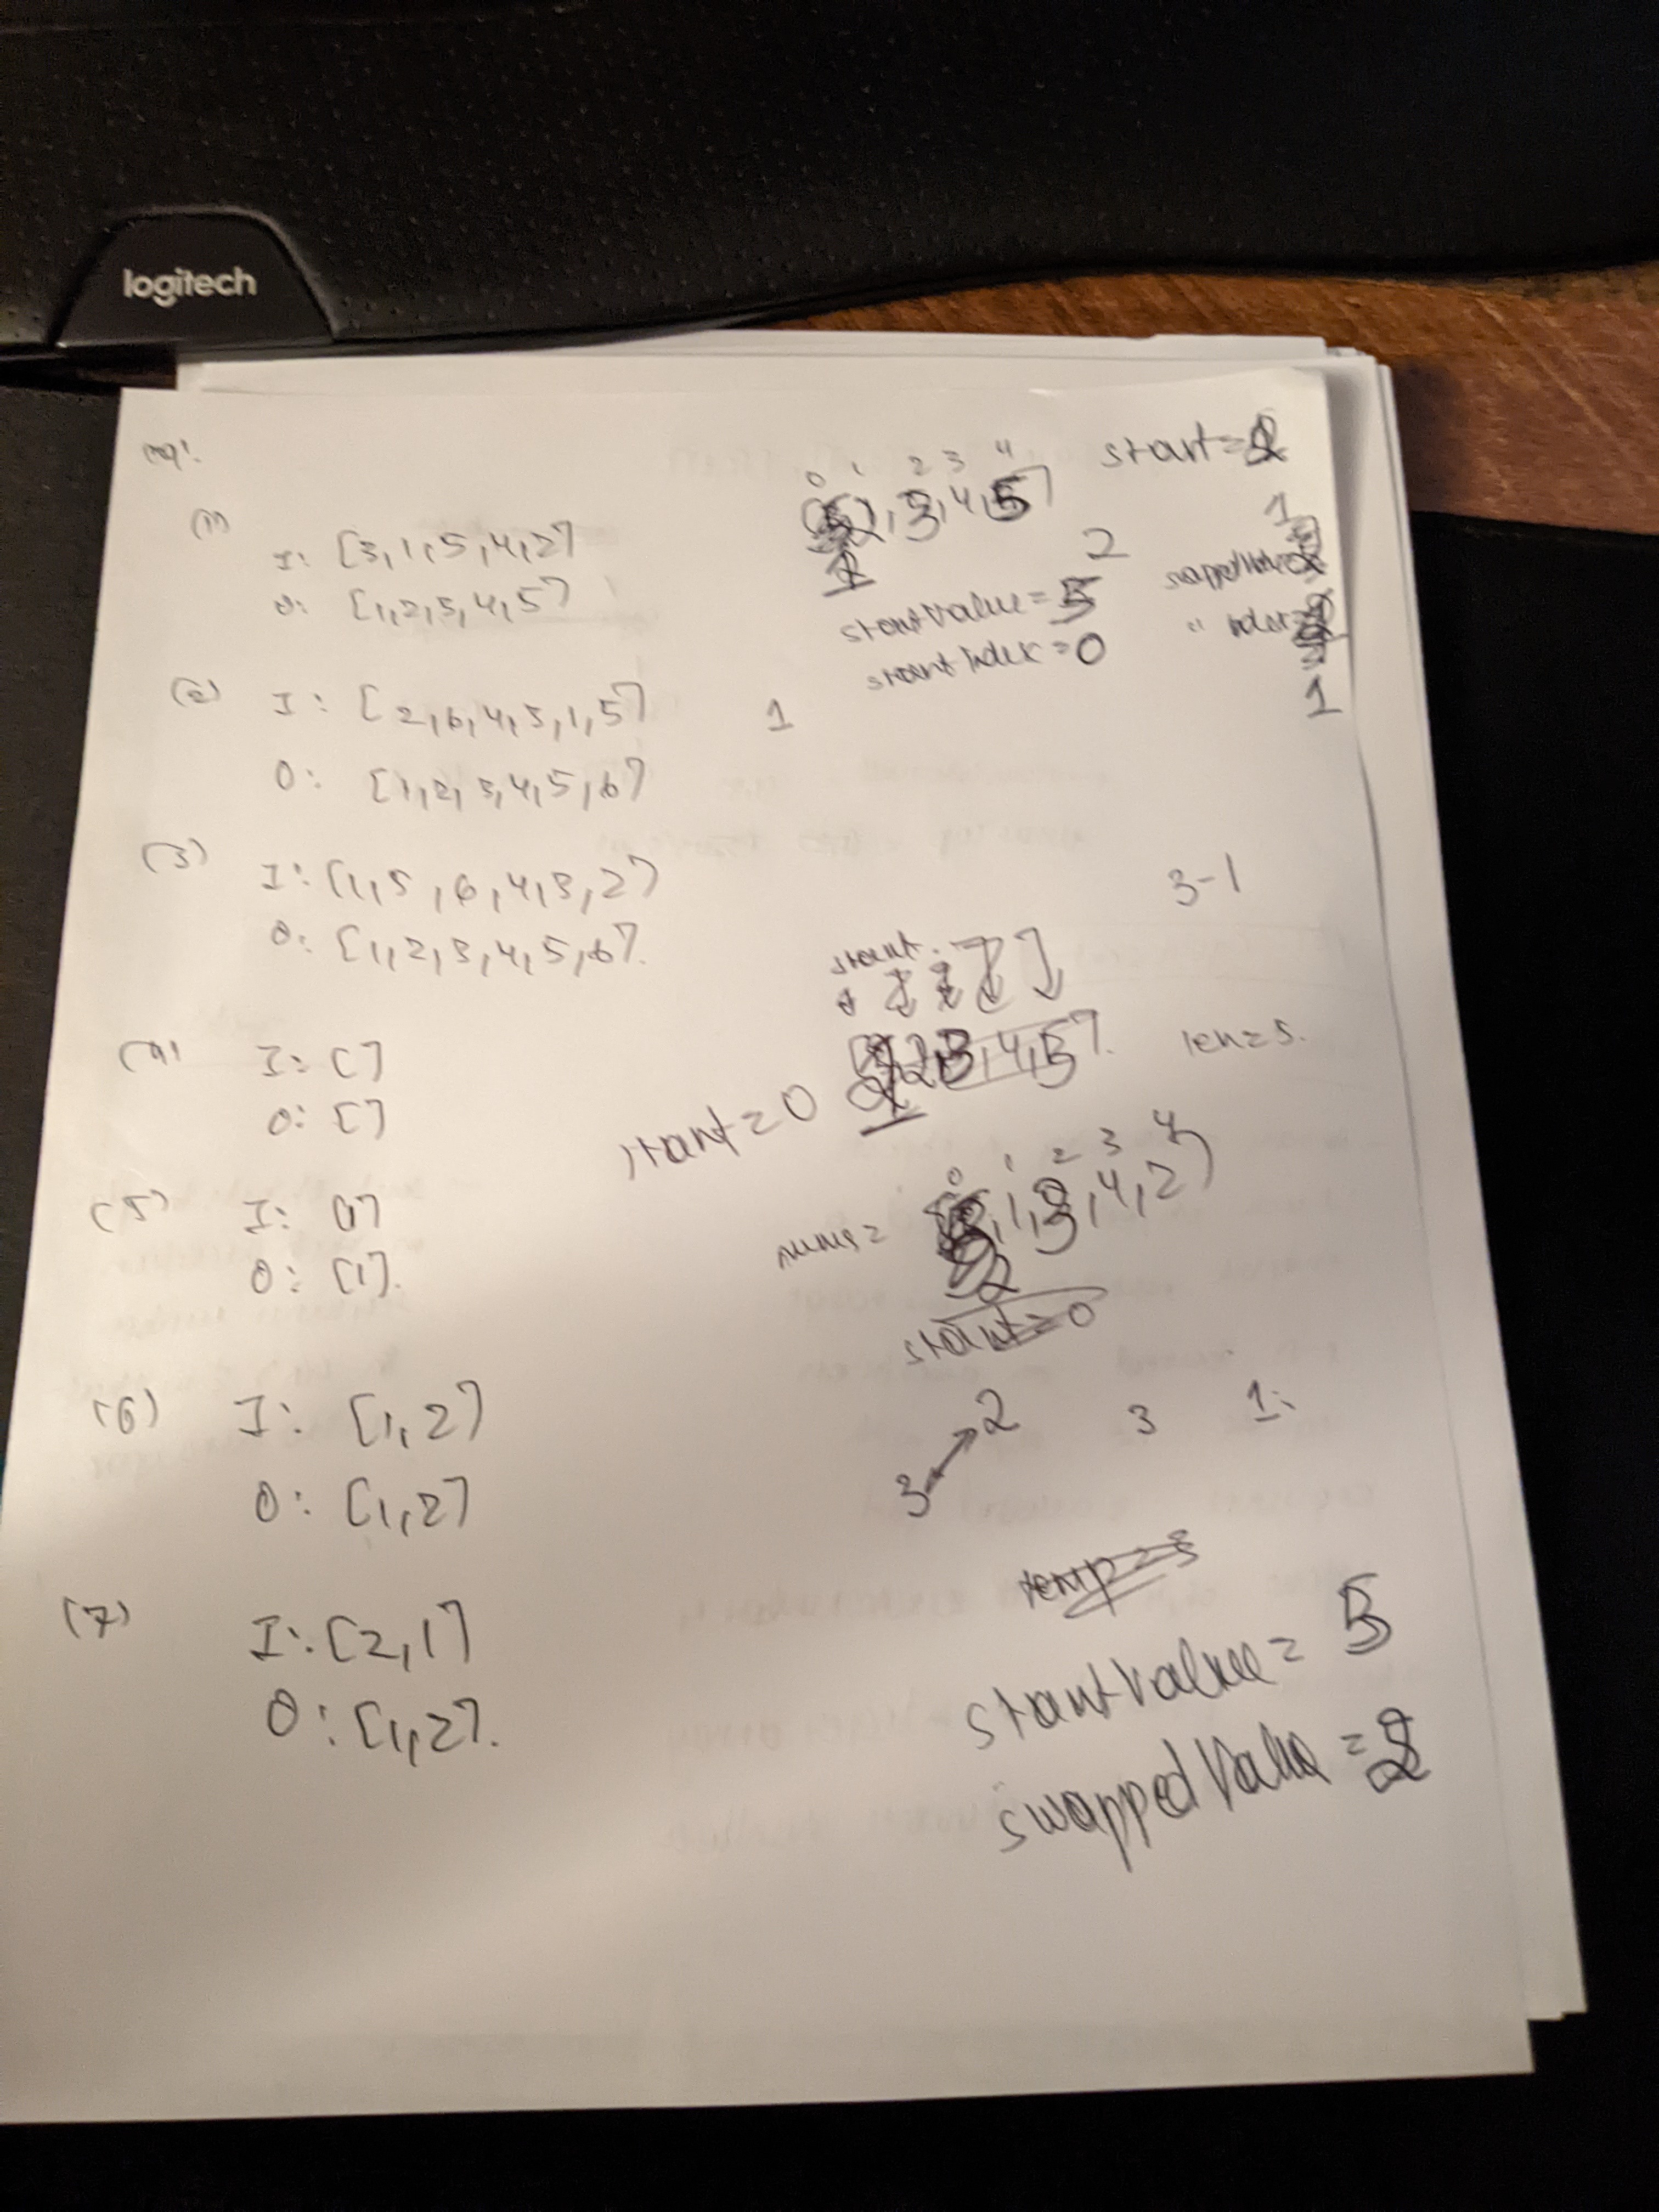 logitech
eg:
(1)
I: [3,1,5,4,2]
O: [1,2,3,4,5]
(2) I: [2,6,4,3,1,5]
O: [1,2,3,4,5,6]
(3) I: [1,5,6,4,3,2]
O: [1,2,3,4,5,6].
(4) I: []
O: []
(5) I: [1]
O: [1].
(6) I: [1,2]
O: [1,2]
(7) I: [2,1]
O: [1,2].
0 1 2 3 4 start=
2, 3, 4, 5]
1
2
startValue = 5
startIndex = 0
1
swappedValue
" index=
1
1
3-1
start
2, 3, 4, 5]. len = 5.
start = 0
1
0 1 2 3 4
nums = , 1, 3, 4, 2]
2
start = 0
3 2 3 1:
temp = 3
startValue = 5
swappedValue = 2